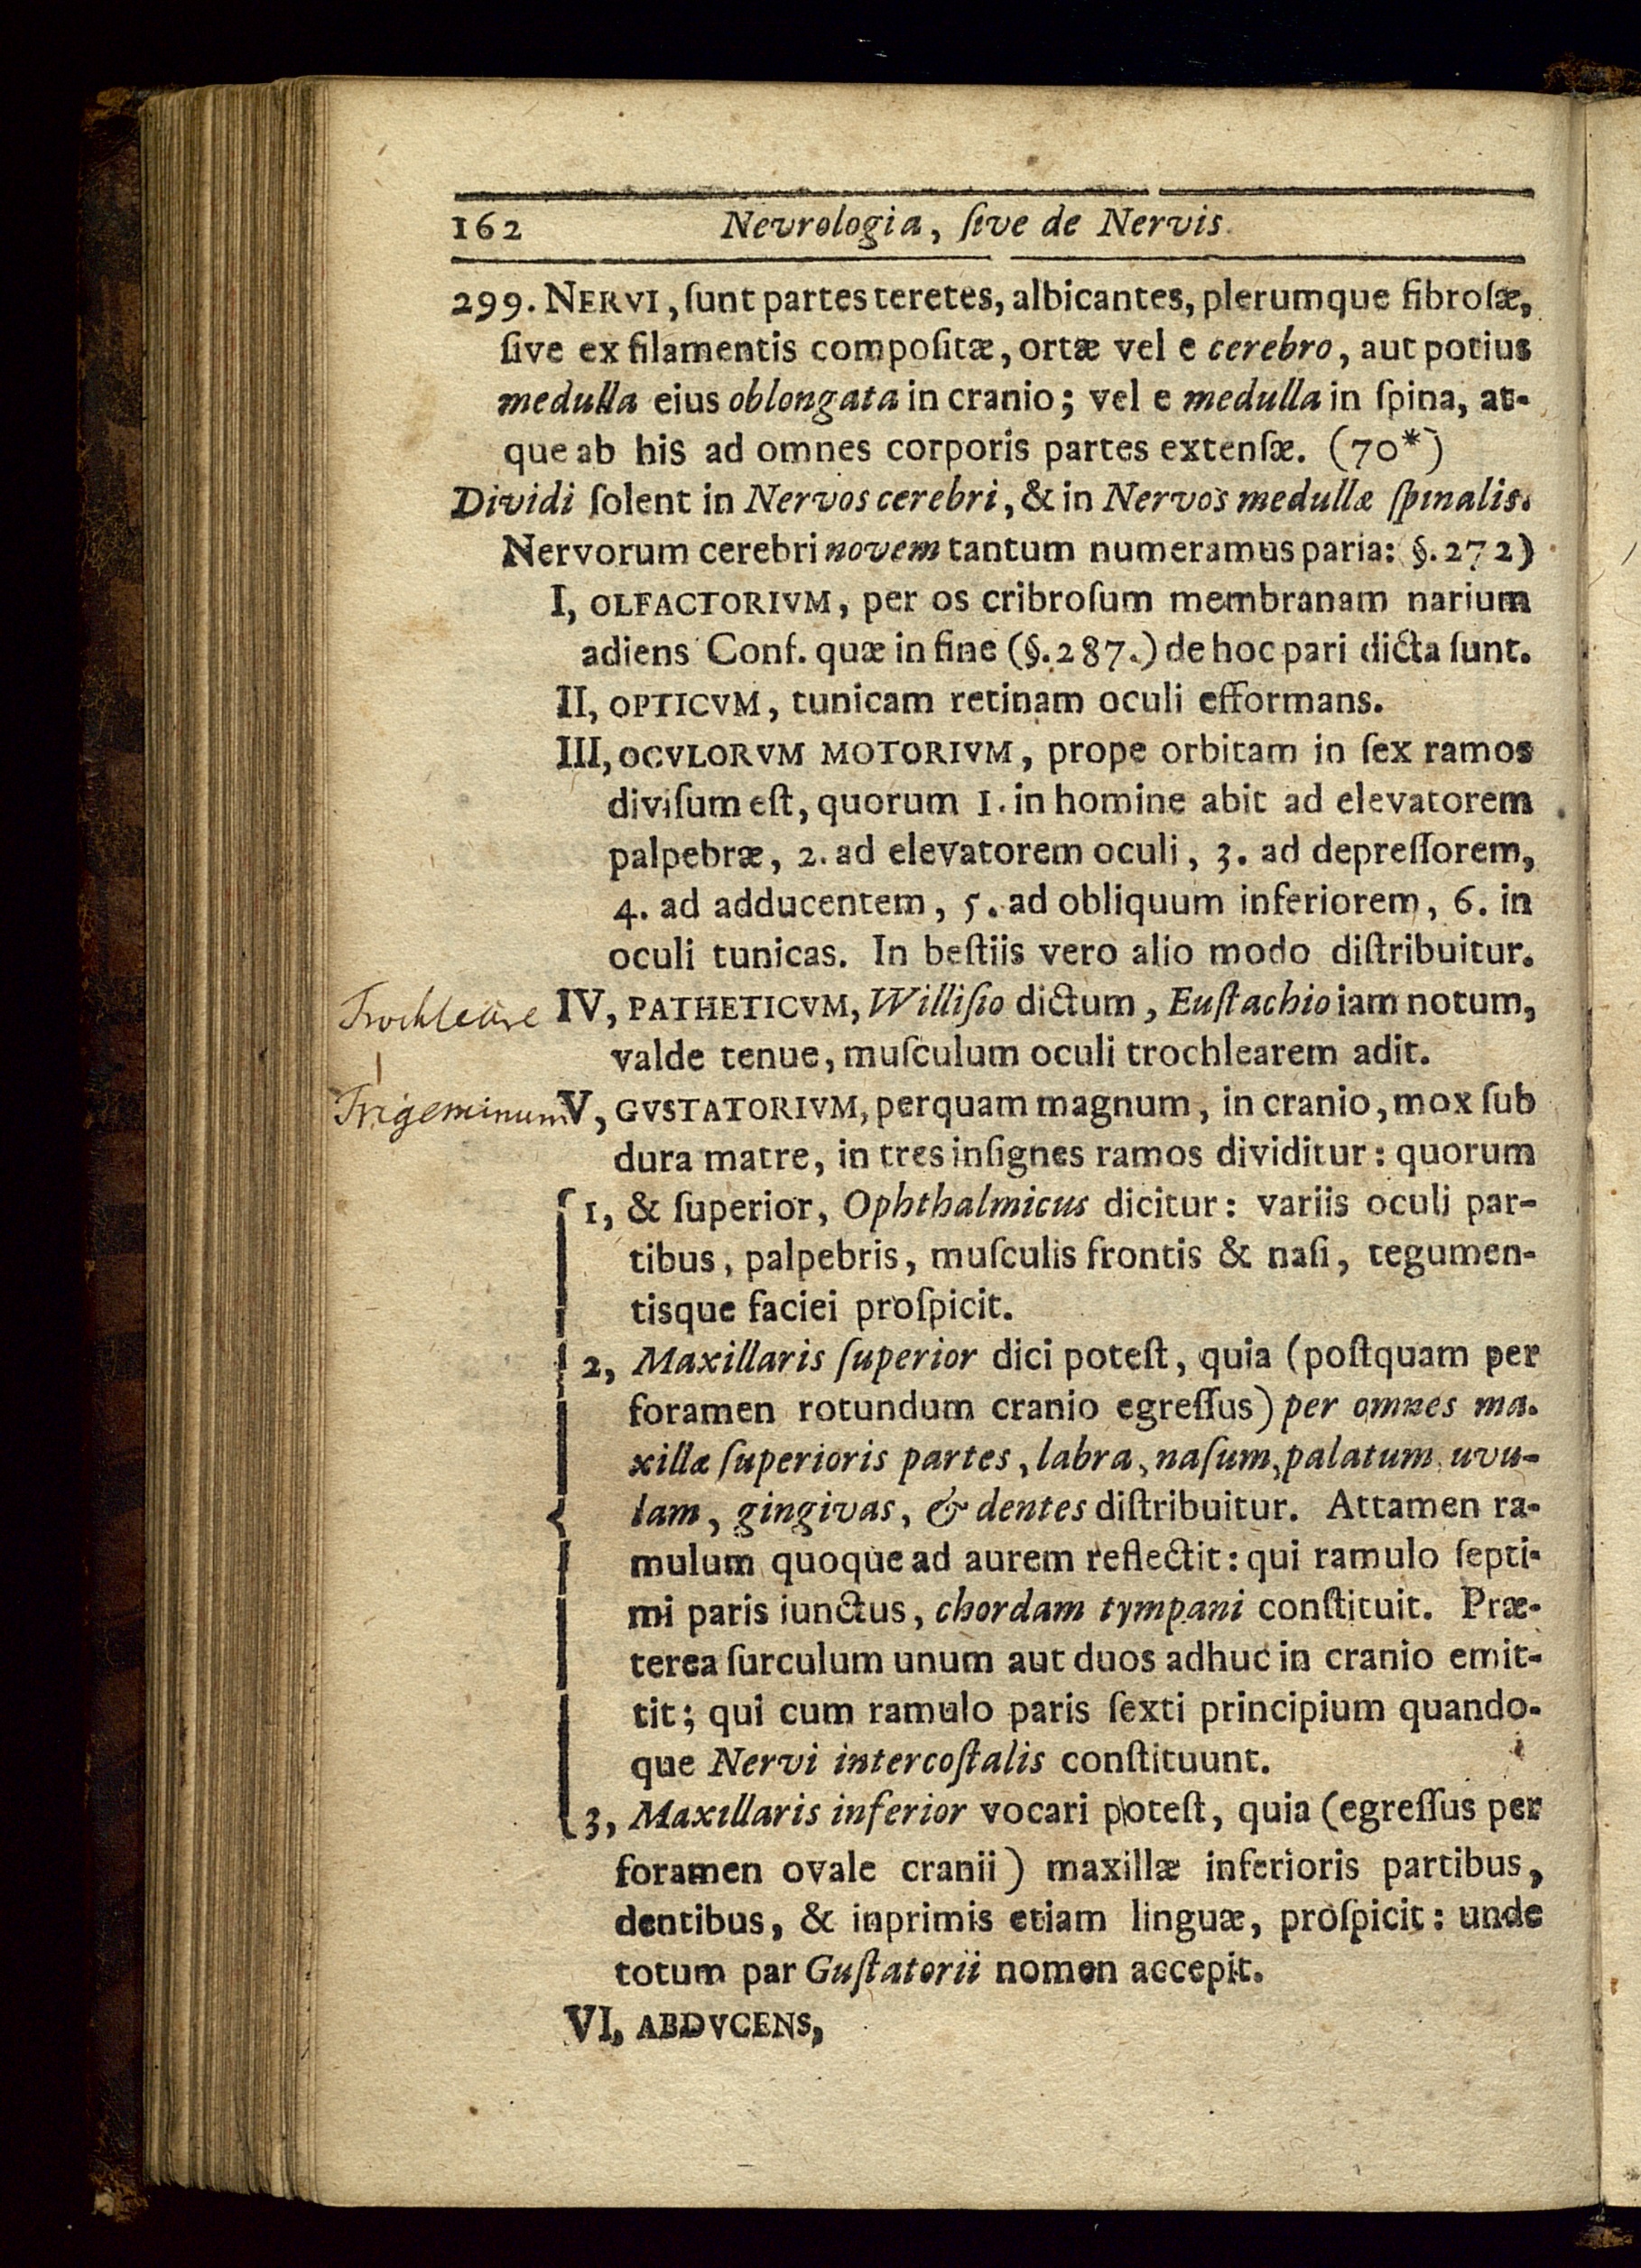 162 Nevrologia, ſive de Nervis.
299. NERVI, ſunt partes teretes, albicantes, plerumque fibroſæ,
ſive ex filamentis compoſitæ, ortæ vel e cerebro, aut potius
medulla eius oblongata in cranio; vel e medulla in ſpina, at-
que ab his ad omnes corporis partes extenſæ. (70*)
Dividi ſolent in Nervos cerebri, & in Nervos medullæ ſpinalis.
Nervorum cerebri novem tantum numeramus paria: §. 272)
I, OLFACTORIVM, per os cribroſum membranam narium
adiens Conf. quæ in fine (§. 287.) de hoc pari dicta ſunt.
II, OPTICVM, tunicam retinam oculi efformans.
III, OCVLORVM MOTORIVM, prope orbitam in ſex ramos
diviſum eſt, quorum 1. in homine abit ad elevatorem
palpebræ, 2. ad elevatorem oculi, 3. ad depreſſorem,
4. ad adducentem, 5. ad obliquum inferiorem, 6. in
oculi tunicas. In beſtiis vero alio modo diſtribuitur.
Trochleare IV, PATHETICVM, Williſio dictum, Euſtachio iam notum,
valde tenue, muſculum oculi trochlearem adit.
Trigeminum V, GVSTATORIVM, perquam magnum, in cranio, mox ſub
dura matre, in tres inſignes ramos dividitur: quorum
1, & ſuperior, Ophthalmicus dicitur: variis oculi par-
tibus, palpebris, muſculis frontis & naſi, tegumen-
tisque faciei proſpicit.
2, Maxillaris ſuperior dici poteſt, quia (poſtquam per
foramen rotundum cranio egreſſus) per omnes ma-
xillæ ſuperioris partes, labra, naſum, palatum, uvu-
lam, gingivas, & dentes diſtribuitur. Attamen ra-
mulum quoque ad aurem reflectit: qui ramulo ſepti-
mi paris iunctus, chordam tympani conſtituit. Præ-
terea ſurculum unum aut duos adhuc in cranio emit-
tit; qui cum ramulo paris ſexti principium quando-
que Nervi intercoſtalis conſtituunt.
3, Maxillaris inferior vocari poteſt, quia (egreſſus per
foramen ovale cranii) maxillæ inferioris partibus,
dentibus, & inprimis etiam linguæ, proſpicit: unde
totum par Guſtatorii nomen accepit.
VI, ABDVCENS,